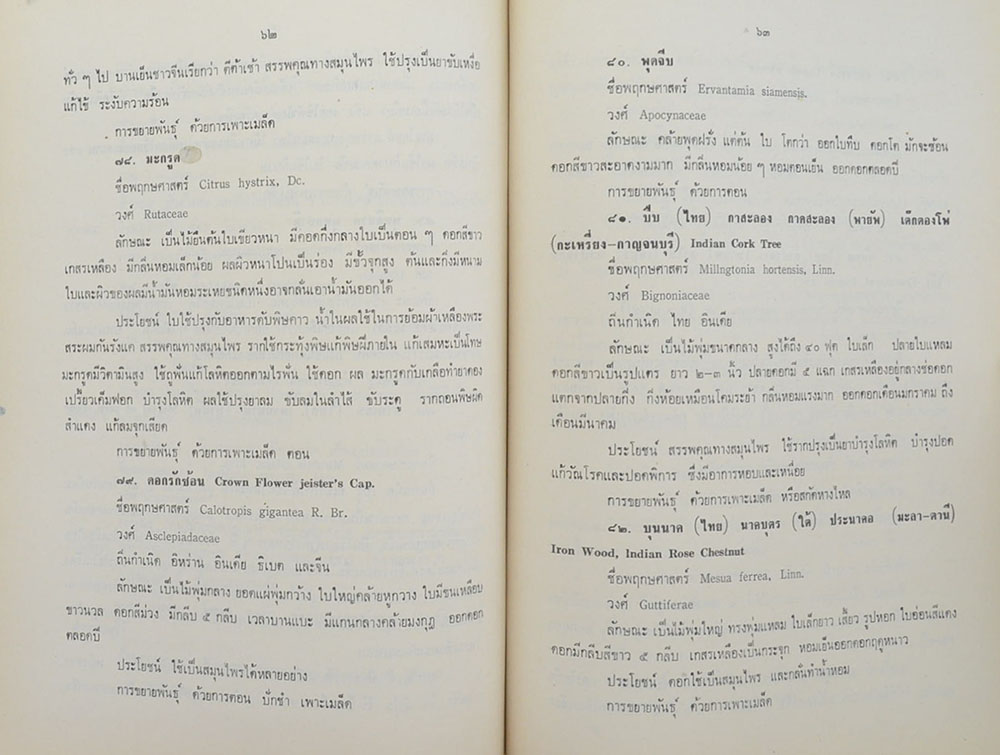 ๖๒
ทั่ว ๆ ไป บานเย็นชาวจีนเรียกว่า ตีต้าเช้า สรรพคุณทางสมุนไพร ใช้ปรุงเป็นยาขับเหงื่อ
แก้ไข้ ระงับความร้อน
การขยายพันธุ์ ด้วยการเพาะเมล็ด
๗๘. มะกรูด
ชื่อพฤกษศาสตร์ Citrus hystrix, Dc.
วงศ์ Rutaceae
ลักษณะ เป็นไม้ยืนต้นใบเขียวหนา มีคอดกึ่งกลางใบเป็นตอน ๆ ดอกสีขาว
เกสรเหลือง มีกลิ่นหอมเล็กน้อย ผลผิวหนาโปนเป็นร่อง มีขั้วจุกสูง ต้นและกิ่งมีหนาม
ใบและผิวของผลมีน้ำมันหอมระเหยชนิดหนึ่งอาจกลั่นเอาน้ำมันออกได้
ประโยชน์ ใบใช้ปรุงกับอาหารดับพิษคาว น้ำในผลใช้ในการย้อมผ้าเหลืองพระ
สระผมกันรังแค สรรพคุณทางสมุนไพร รากใช้กระทุ้งพิษแก้พิษฝีภายใน แก้เสมหะเป็นโทษ
มะกรูดมีวิตามินสูง ใช้ถูฟันแก้โลหิตออกตามไรฟัน ใช้ดอก ผล มะกรูดกับเกลือทำยาดอง
เปรี้ยวเค็มฟอก บำรุงโลหิต ผลใช้ปรุงยาลม ขับลมในลำไส้ ขับระดู รากถอนพิษผิด
สำแดง แก้ลมจุกเสียด
การขยายพันธุ์ ด้วยการเพาะเมล็ด ตอน
๗๙. ดอกรักซ้อน Crown Flower jeister's Cap.
ชื่อพฤกษศาสตร์ Calotropis gigantea R. Br.
วงศ์ Asclepiadaceae
ถิ่นกำเนิด อิหร่าน อินเดีย ธิเบต และจีน
ลักษณะ เป็นไม้พุ่มกลาง ยอดแผ่พุ่มกว้าง ใบใหญ่คล้ายหูกวาง ใบมีขนเหลือบ
ขาวนวล ดอกสีม่วง มีกลีบ ๕ กลีบ เวลาบานแบะ มีแกนกลางคล้ายมงกุฎ ออกดอก
ตลอดปี
ประโยชน์ ใช้เป็นสมุนไพรได้หลายอย่าง
การขยายพันธุ์ ด้วยการตอน ปักชำ เพาะเมล็ด
๖๓
๘๐. พุดจีบ
ชื่อพฤกษศาสตร์ Ervantamia siamensis.
วงศ์ Apocynaceae
ลักษณะ คล้ายพุดฝรั่ง แต่ต้น ใบ โตกว่า ออกใบทึบ ดอกโต มักจะซ้อน
ดอกสีขาวสะอาดงามมาก มีกลิ่นหอมน้อย ๆ หอมตอนเย็น ออกดอกตลอดปี
การขยายพันธุ์ ด้วยการตอน
๘๑. ปีบ (ไทย) กาสะลอง กาดสะลอง (พายัพ) เด็กตองโพ่
(กะเหรี่ยง–กาญจนบุรี) Indian Cork Tree
ชื่อพฤกษศาสตร์ Millngtonia hortensis, Linn.
วงศ์ Bignoniaceae
ถิ่นกำเนิด ไทย อินเดีย
ลักษณะ เป็นไม้พุ่มขนาดกลาง สูงได้ถึง ๔๐ ฟุต ใบเล็ก ปลายใบแหลม
ดอกสีขาวเป็นรูปแตร ยาว ๒–๓ นิ้ว ปลายดอกมี ๕ แฉก เกสรเหลืองอยู่กลางช่อดอก
แตกจากปลายกิ่ง กิ่งห้อยเหมือนโคมระย้า กลิ่นหอมแรงมาก ออกดอกเดือนมกราคม ถึง
เดือนมีนาคม
ประโยชน์ สรรพคุณทางสมุนไพร ใช้รากปรุงเป็นยาบำรุงโลหิต บำรุงปอด
แก้วัณโรคและปอดพิการ ซึ่งมีอาการหอบและเหนื่อย
การขยายพันธุ์ ด้วยการเพาะเมล็ด หรือสกัดทางไหล
๘๒. บุนนาค (ไทย) นาคบุตร (ใต้) ประนาคอ (มะลา–ตานี)
Iron Wood, Indian Rose Chestnut
ชื่อพฤกษศาสตร์ Mesua ferrea, Linn.
วงศ์ Guttiferae
ลักษณะ เป็นไม้พุ่มใหญ่ ทรงพุ่มแหลม ใบเล็กยาว เสี้ยว รูปหอก ใบอ่อนสีแดง
ดอกมีกลีบสีขาว ๕ กลีบ เกสรเหลืองเป็นกระจุก หอมเย็นออกดอกฤดูหนาว
ประโยชน์ ดอกใช้เป็นสมุนไพร และกลั่นทำน้ำหอม
การขยายพันธุ์ ด้วยการเพาะเมล็ด